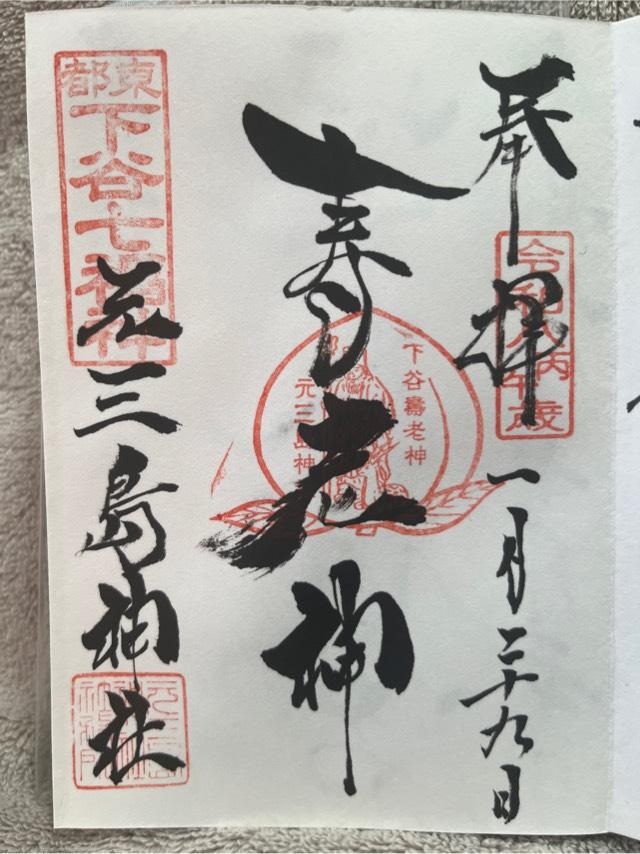 奉拝
令和八丙午歳
一月二十九日
寿老神
下谷壽老神
元三島神
東都
下谷七福神
元三島神社